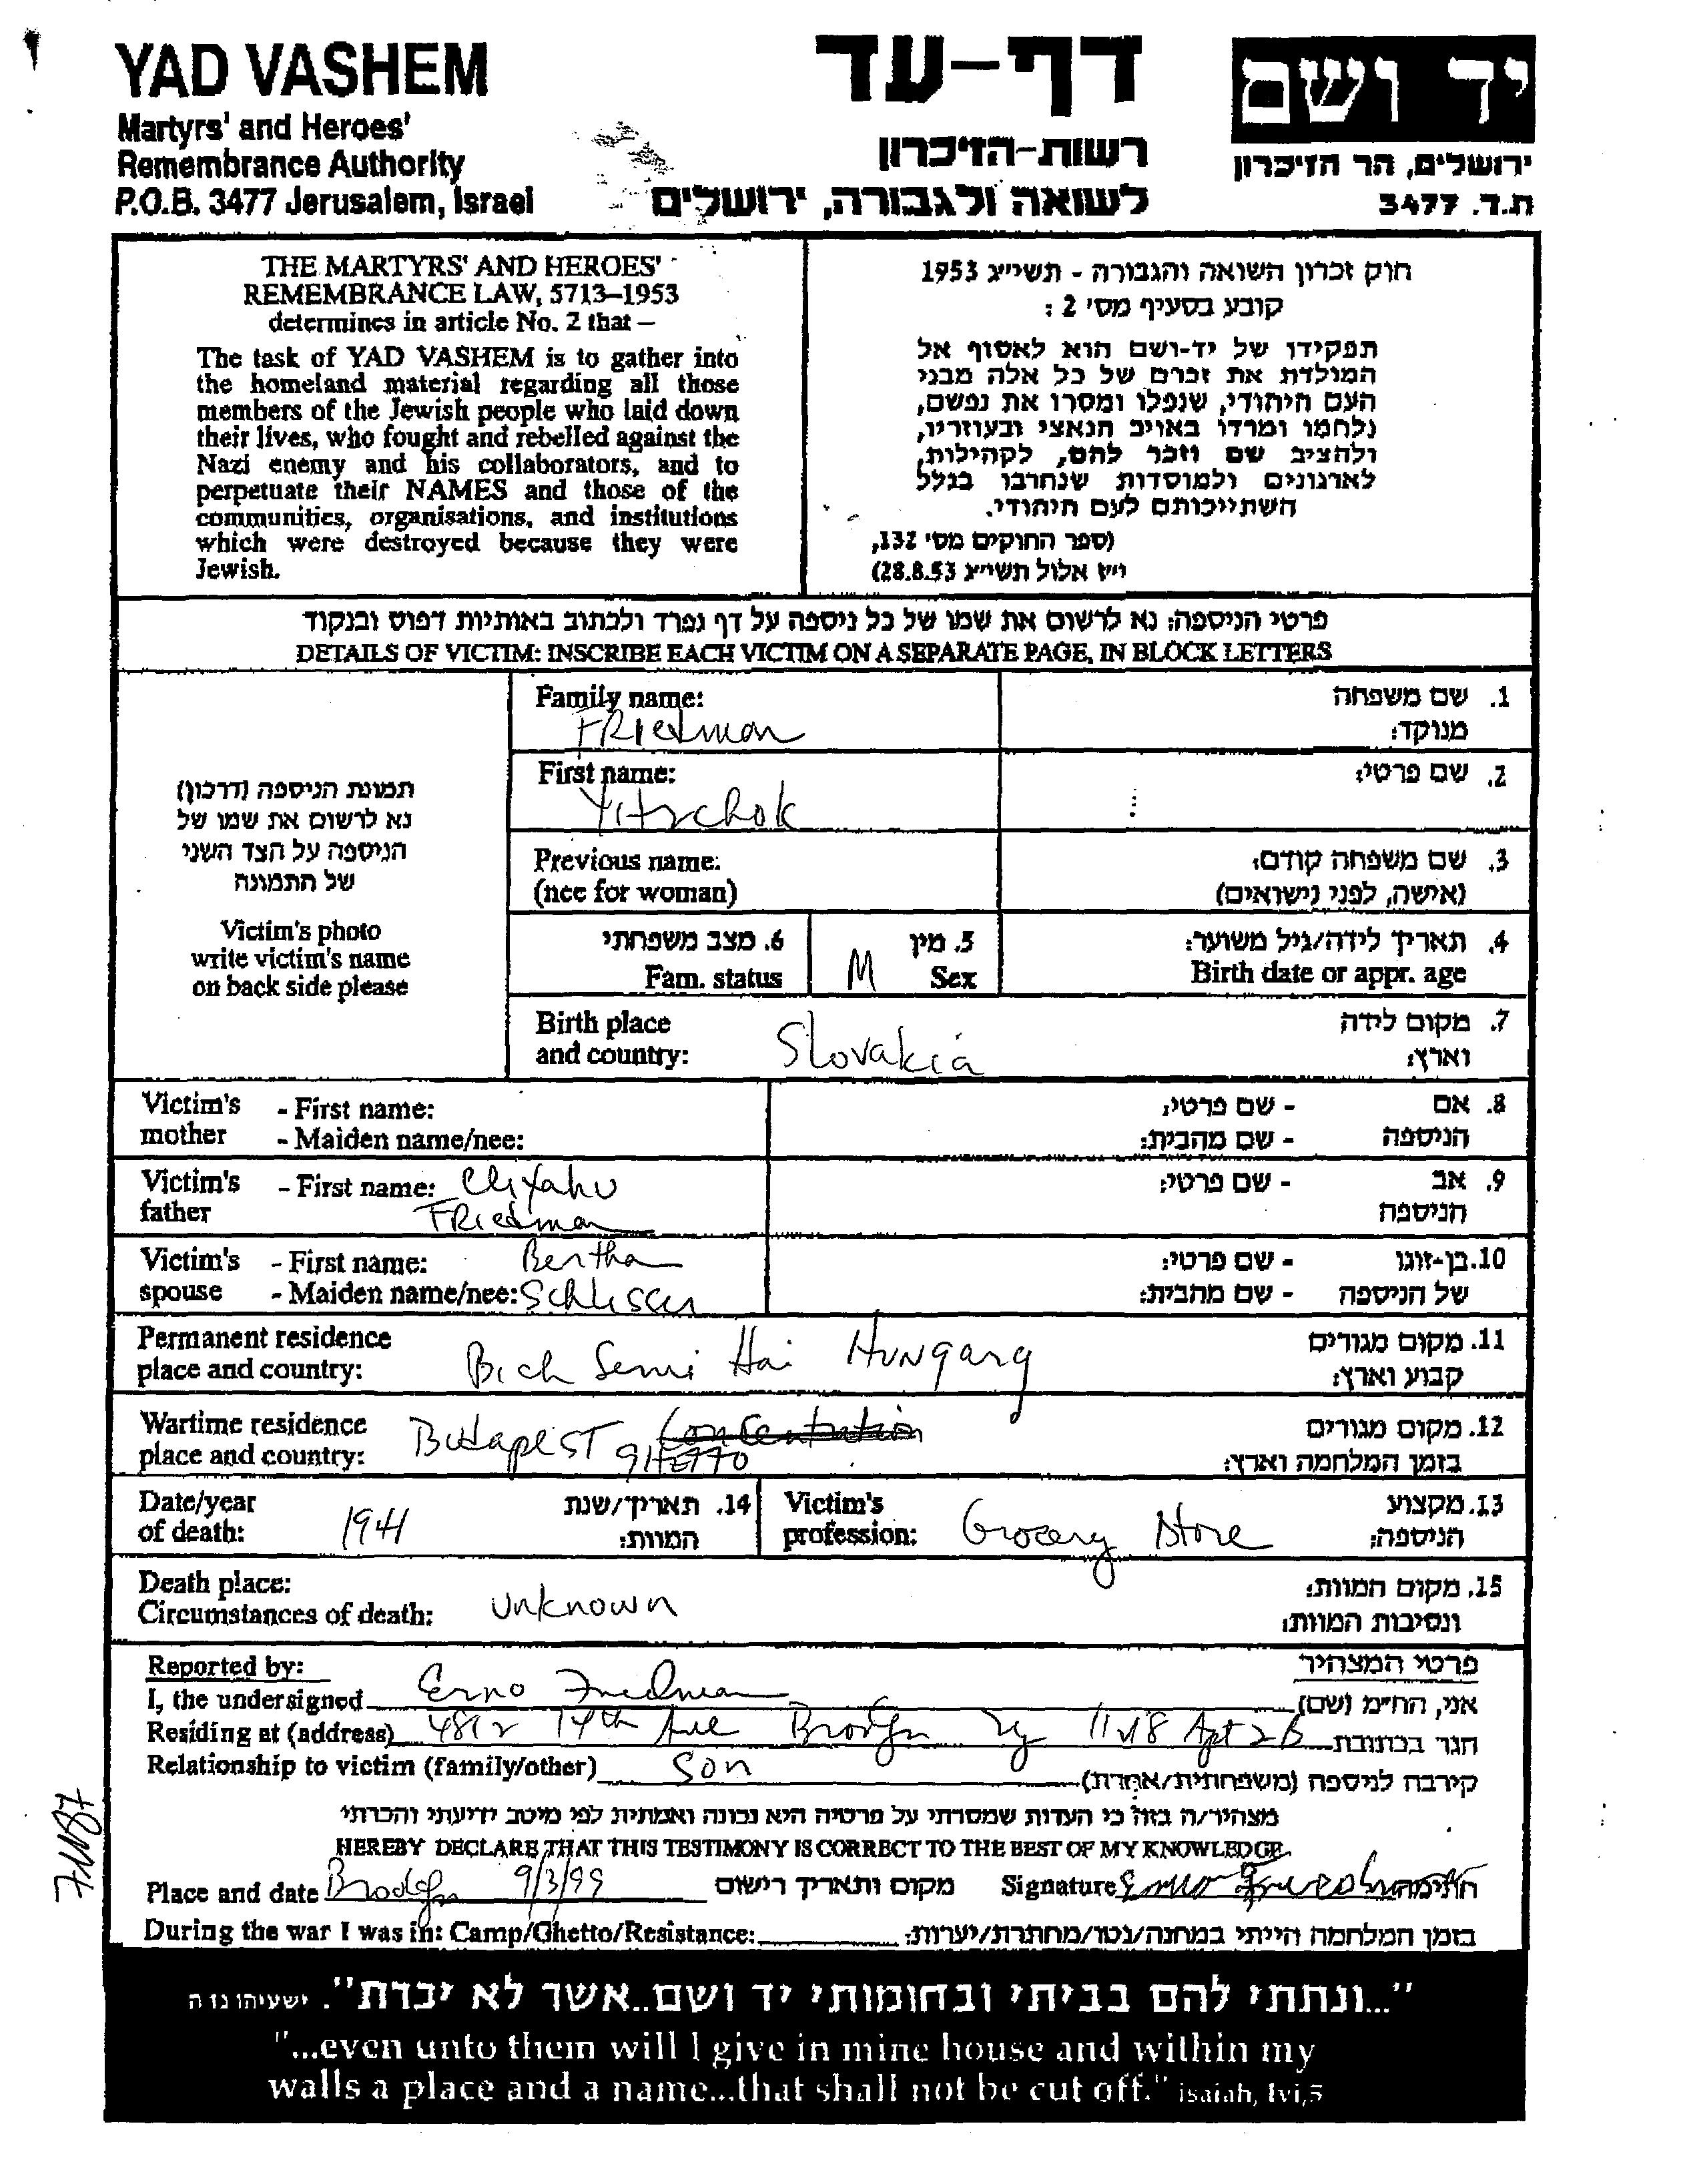 YAD VASHEM
Martyrs' and Heroes'
Remembrance Authority
P.O.B. 3477 Jerusalem, Israel
דף-עד
רשות-הזיכרון
לשואה ולגבורה, ירושלים
יד ושם
ירושלים, הר הזיכרון
ת.ד. 3477
THE MARTYRS' AND HEROES'
REMEMBRANCE LAW, 5713–1953
determines in article No. 2 that –
The task of YAD VASHEM is to gather into
the homeland material regarding all those
members of the Jewish people who laid down
their lives, who fought and rebelled against the
Nazi enemy and his collaborators, and to
perpetuate their NAMES and those of the
communities, organisations, and institutions
which were destroyed because they were
Jewish.
חוק זכרון השואה והגבורה - תשי"ג 1953
קובע בסעיף מס' 2 :
תפקידו של יד-ושם הוא לאסוף אל
המולדת את זכרם של כל אלה מבני
העם היהודי, שנפלו ומסרו את נפשם,
נלחמו ומרדו באויב הנאצי ובעוזריו,
ולהציב שם וזכר להם, לקהילות,
לארגונים ולמוסדות שנחרבו בגלל
השתייכותם לעם היהודי.
(ספר החוקים מס' 132,
י"ז אלול תשי"ג 28.8.53)
פרטי הניספה: נא לרשום את שמו של כל ניספה על דף נפרד ולכתוב באותיות דפוס ובנקוד
DETAILS OF VICTIM: INSCRIBE EACH VICTIM ON A SEPARATE PAGE, IN BLOCK LETTERS
תמונת הניספה (דרכון)
נא לרשום את שמו של
הניספה על הצד השני
של התמונה
Victim's photo
write victim's name
on back side please
Family name: 1. שם משפחה
FRIedman מנוקד:
First name: 2. שם פרטי:
Yitzchok
Previous name: 3. שם משפחה קודם:
(nee for woman) (אישה, לפני נישואים)
6. מצב משפחתי 5. מין 4. תאריך לידה/גיל משוער:
Fam. status M Sex Birth date or appr. age
Birth place 7. מקום לידה
and country: Slovakia וארץ:
Victim's - First name: - שם פרטי: 8. אם
mother - Maiden name/nee: - שם מהבית: הניספה
Victim's - First name: Eliyahu - שם פרטי: 9. אב
father FRiedman הניספה
Victim's - First name: Bertha - שם פרטי: 10. בן-זוגו
spouse - Maiden name/nee: - שם מהבית: של הניספה
Permanent residence 11. מקום מגורים
place and country: Bich Semi Hai Hungary קבוע וארץ:
Wartime residence 12. מקום מגורים
place and country: Budapest Concentration gHETTO בזמן המלחמה וארץ:
Date/year 14. תאריך/שנת Victim's 13. מקצוע
of death: 1941 המוות: profession: Grocery Store הניספה:
Death place: 15. מקום המוות:
Circumstances of death: unknown ונסיבות המוות:
Reported by: פרטי המצהיר
I, the undersigned Erno Friedman אני, הח"מ (שם)
Residing at (address) 4812 14th Ave Brooklyn Ny 11218 Apt 2B הגר בכתובת
Relationship to victim (family/other) Son קירבה לניספה (משפחתית/אחרת)
מצהיר/ה בזה כי העדות שמסרתי על פרטיה היא נכונה ואמתית לפי מיטב ידיעתי והכרתי
HEREBY DECLARE THAT THIS TESTIMONY IS CORRECT TO THE BEST OF MY KNOWLEDGE.
Place and date Brooklyn 9/3/99 מקום ותאריך רישום Signature Erno Friedman חתימה
During the war I was in: Camp/Ghetto/Resistance: בזמן המלחמה הייתי במחנה/גטו/מחתרת/יערות:
"...ונתתי להם בביתי ובחומותי יד ושם..אשר לא יכרת". ישעיהו נו ה
"...even unto them will I give in mine house and within my
walls a place and a name...that shall not be cut off." isaiah, lvi,5